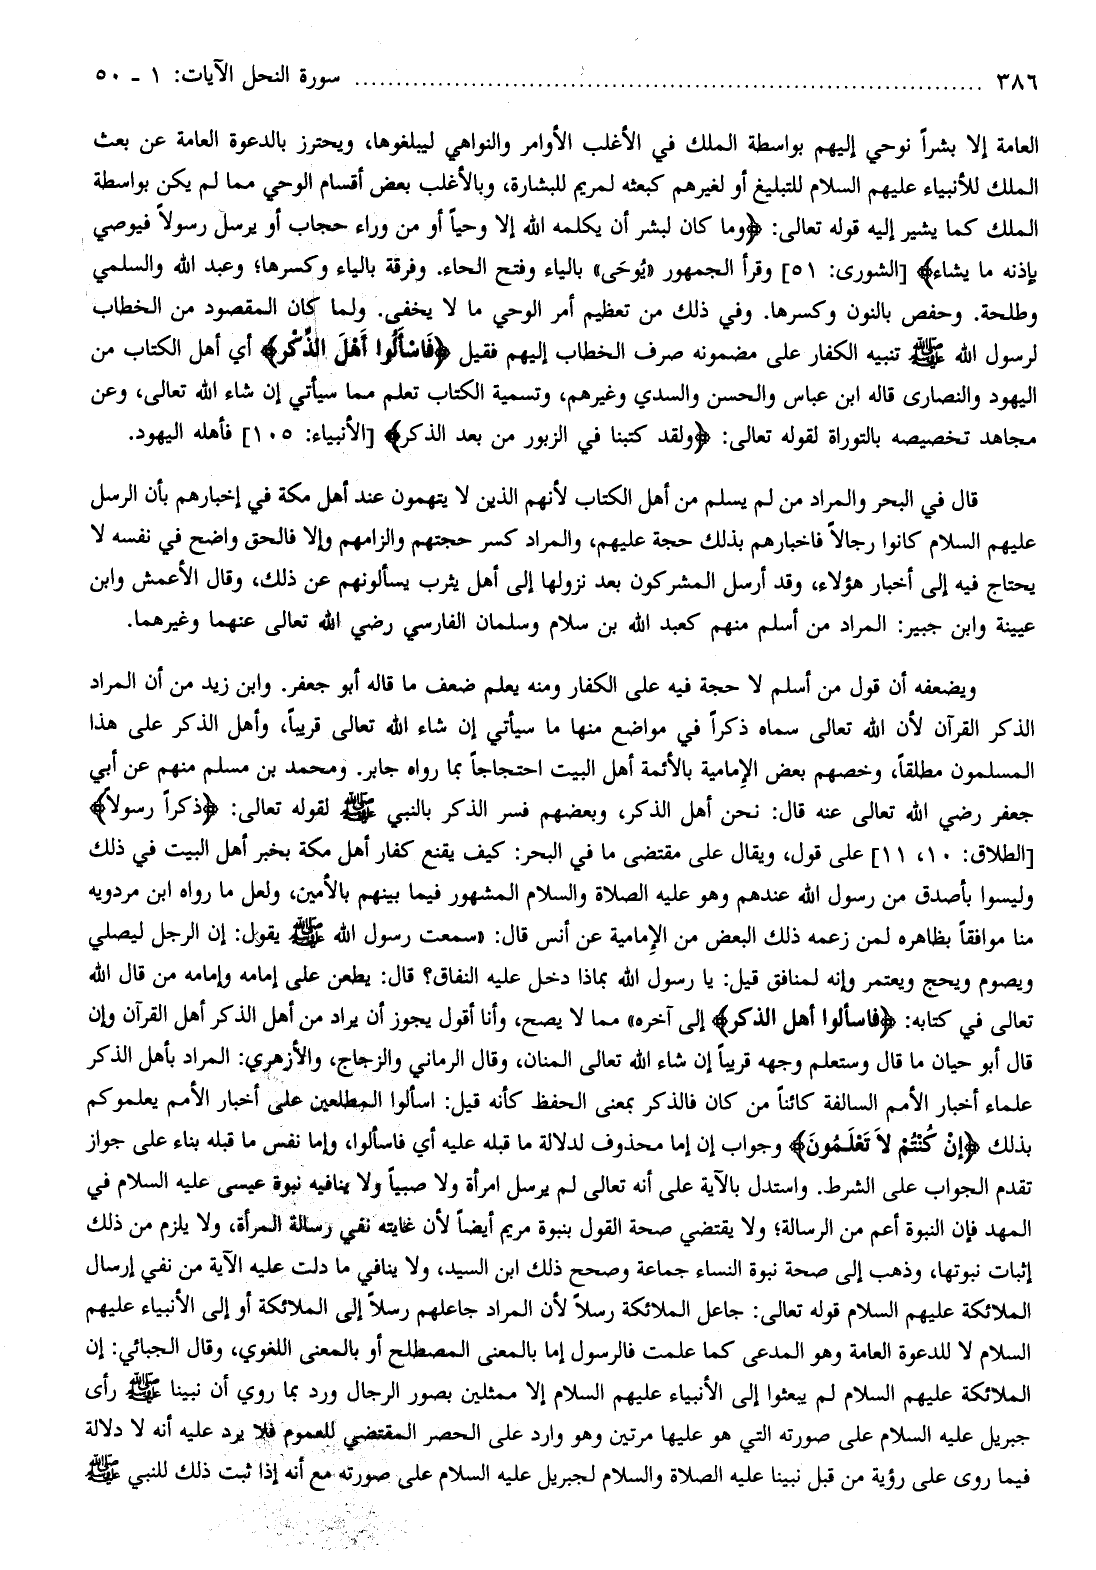 ٣٨٦ ........................................ سورة النحل الآيات: ١ ـ ٥٠
العامة إلا بشراً نوحي إليهم بواسطة الملك في الأغلب الأوامر والنواهي ليبلغوها، ويحترز بالدعوة العامة عن بعث
الملك للأنبياء عليهم السلام للتبليغ أو لغيرهم كبعثه لمريم للبشارة، وبالأغلب بعض أقسام الوحي مما لم يكن بواسطة
الملك كما يشير إليه قوله تعالى: ﴿وما كان لبشر أن يكلمه الله إلا وحياً أو من وراء حجاب أو يرسل رسولاً فيوصي
بإذنه ما يشاء﴾ [الشورى: ٥١] وقرأ الجمهور «يُوحَى» بالياء وفتح الحاء. وفرقة بالياء وكسرها؛ وعبد الله والسلمي
وطلحة. وحفص بالنون وكسرها. وفي ذلك من تعظيم أمر الوحي ما لا يخفى. ولما كان المقصود من الخطاب
لرسول الله ﷺ تنبيه الكفار على مضمونه صرف الخطاب إليهم فقيل ﴿فَاسْأَلُوا أَهْلَ الذِّكْرِ﴾ أي أهل الكتاب من
اليهود والنصارى قاله ابن عباس والحسن والسدي وغيرهم، وتسمية الكتاب تعلم مما سيأتي إن شاء الله تعالى، وعن
مجاهد تخصيصه بالتوراة لقوله تعالى: ﴿ولقد كتبنا في الزبور من بعد الذكر﴾ [الأنبياء: ١٠٥] فأهله اليهود.
قال في البحر والمراد من لم يسلم من أهل الكتاب لأنهم الذين لا يتهمون عند أهل مكة في إخبارهم بأن الرسل
عليهم السلام كانوا رجالاً فاخبارهم بذلك حجة عليهم، والمراد كسر حجتهم والزامهم وإلا فالحق واضح في نفسه لا
يحتاج فيه إلى أخبار هؤلاء، وقد أرسل المشركون بعد نزولها إلى أهل يثرب يسألونهم عن ذلك، وقال الأعمش وابن
عيينة وابن جبير: المراد من أسلم منهم كعبد الله بن سلام وسلمان الفارسي رضي الله تعالى عنهما وغيرهما.
ويضعفه أن قول من أسلم لا حجة فيه على الكفار ومنه يعلم ضعف ما قاله أبو جعفر. وابن زيد من أن المراد
الذكر القرآن لأن الله تعالى سماه ذكراً في مواضع منها ما سيأتي إن شاء الله تعالى قريباً، وأهل الذكر على هذا
المسلمون مطلقاً، وخصهم بعض الإمامية بالأئمة أهل البيت احتجاجاً بما رواه جابر. ومحمد بن مسلم منهم عن أبي
جعفر رضي الله تعالى عنه قال: نحن أهل الذكر، وبعضهم فسر الذكر بالنبي ﷺ لقوله تعالى: ﴿ذكراً رسولاً﴾
[الطلاق: ١٠، ١١] على قول، ويقال على مقتضى ما في البحر: كيف يقنع كفار أهل مكة بخبر أهل البيت في ذلك
وليسوا بأصدق من رسول الله عندهم وهو عليه الصلاة والسلام المشهور فيما بينهم بالأمين، ولعل ما رواه ابن مردويه
منا موافقاً بظاهره لمن زعمه ذلك البعض من الإمامية عن أنس قال: «سمعت رسول الله ﷺ يقول: إن الرجل ليصلي
ويصوم ويحج ويعتمر وإنه لمنافق قيل: يا رسول الله بماذا دخل عليه النفاق؟ قال: يطعن على إمامه وإمامه من قال الله
تعالى في كتابه: ﴿فاسألوا أهل الذكر﴾ إلى آخره» مما لا يصح، وأنا أقول يجوز أن يراد من أهل الذكر أهل القرآن وإن
قال أبو حيان ما قال وستعلم وجهه قريباً إن شاء الله تعالى المنان، وقال الرماني والزجاج، والأزهري: المراد بأهل الذكر
علماء أخبار الأمم السالفة كائناً من كان فالذكر بمعنى الحفظ كأنه قيل: اسألوا المطلعين على أخبار الأمم يعلموكم
بذلك ﴿إنْ كُنْتُمْ لاَ تَعْلَمُونَ﴾ وجواب إن إما محذوف لدلالة ما قبله عليه أي فاسألوا، وإما نفس ما قبله بناء على جواز
تقدم الجواب على الشرط. واستدل بالآية على أنه تعالى لم يرسل امرأة ولا صبياً ولا ينافيه نبوة عيسى عليه السلام في
المهد فإن النبوة أعم من الرسالة؛ ولا يقتضي صحة القول بنبوة مريم أيضاً لأن غايته نفي رسالة المرأة، ولا يلزم من ذلك
إثبات نبوتها، وذهب إلى صحة نبوة النساء جماعة وصحح ذلك ابن السيد، ولا ينافي ما دلت عليه الآية من نفي إرسال
الملائكة عليهم السلام قوله تعالى: جاعل الملائكة رسلاً لأن المراد جاعلهم رسلاً إلى الملائكة أو إلى الأنبياء عليهم
السلام لا للدعوة العامة وهو المدعى كما علمت فالرسول إما بالمعنى المصطلح أو بالمعنى اللغوي، وقال الجبائي: إن
الملائكة عليهم السلام لم يبعثوا إلى الأنبياء عليهم السلام إلا ممثلين بصور الرجال ورد بما روي أن نبينا ﷺ رأى
جبريل عليه السلام على صورته التي هو عليها مرتين وهو وارد على الحصر المقتضي للعموم فلا يرد عليه أنه لا دلالة
فيما روى على رؤية من قبل نبينا عليه الصلاة والسلام لجبريل عليه السلام على صورته مع أنه إذا ثبت ذلك للنبي ﷺ